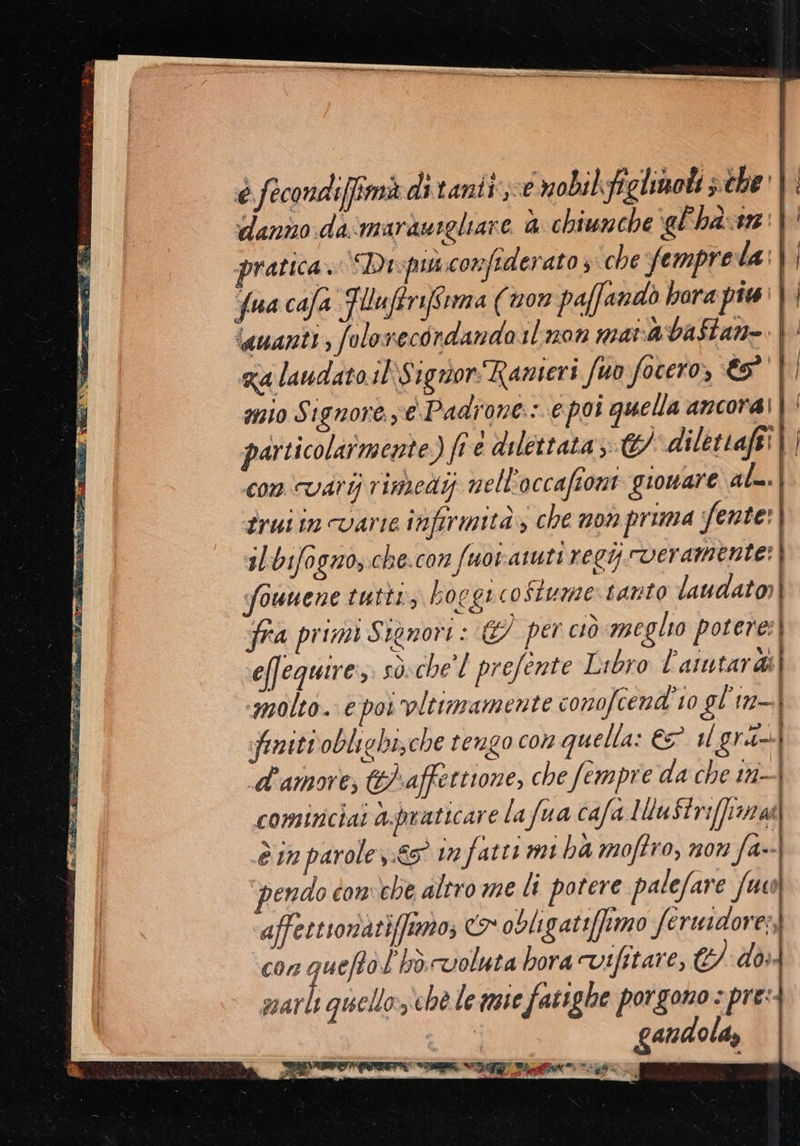 è fecondiſſima di tanti, e nobil figliuoli, che
danno da marauigliare à chiunche gl'hà in
pratica. Di più conſiderato, che ſempre la
ſua caſa Illuſtriſsima (non paſſando hora piu
auanti, ſolo recordando il non mai à baſtan-
za laudato il Signor Ranieri ſuo ſocero, &
mio Signore, e Padrone: e poi quella ancora
particolarmente) ſi è dilettata, & dilettaſi
con varij rimedij nell'occaſioni giouare al-
trui in varie infirmità, che non prima ſente
il biſogno, che con ſuoi aiuti regij veramente
ſouuene tutti, hoggi coſtume tanto laudato
fra primi Signori: & per ciò meglio potere
eſſequire, sò che'l preſente Libro l'aiutarà
molto. e poi vltimamente conoſcend'io gl'in-
finiti oblighi, che tengo con quella: & il grã
d'amore, & affettione, che ſempre da che in-
cominciai à praticare la ſua caſa Illuſtriſſima
è in parole, & in fatti mi hà moſtro, non ſa-
pendo con che altro me li potere paleſare ſuo
affettionatiſſimo, & obligatiſſimo ſeruidore,
con queſto l'hò voluta hora viſitare, & do-
narli quello, che le mie fatighe porgono: pre-
gandola,